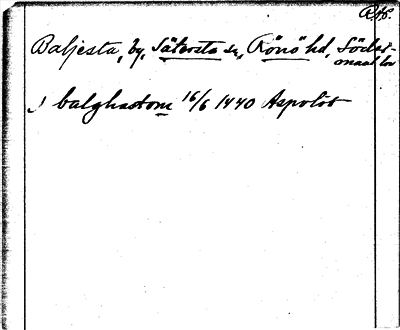 RAp.
Baljesta, by, Sätersta sn, Rönö hd, Söder-
manl. län
J balghastom 16/6 1440 Aspolöt